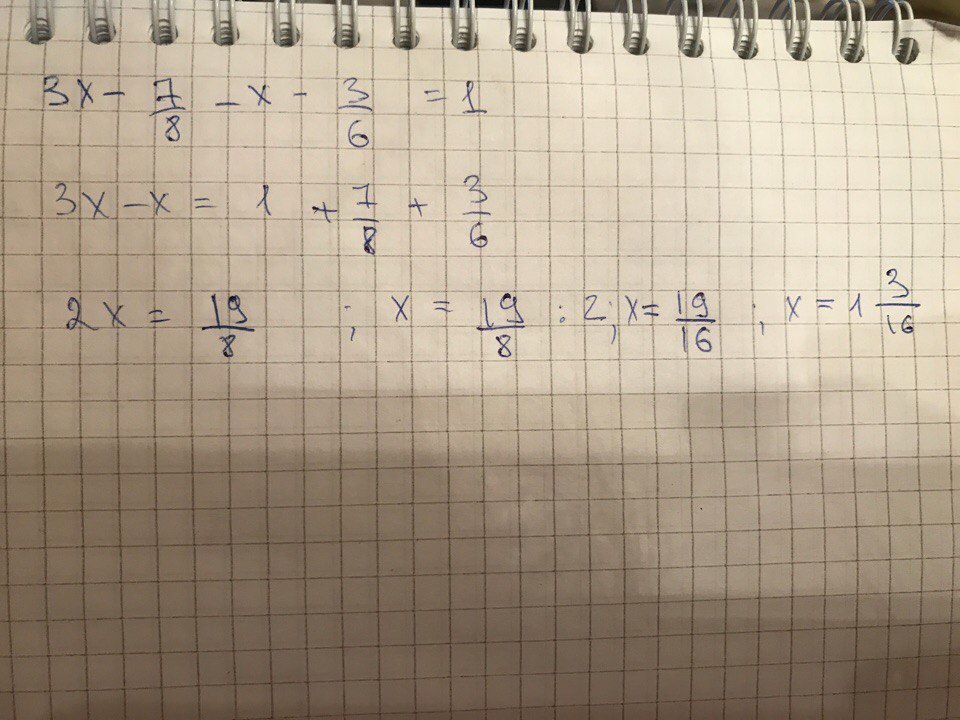 3x - 7/8 - x - 3/6 = 1
3x - x = 1 + 7/8 + 3/6
2x = 19/8 ; x = 19/8 : 2; x = 19/16 ; x = 1 3/16